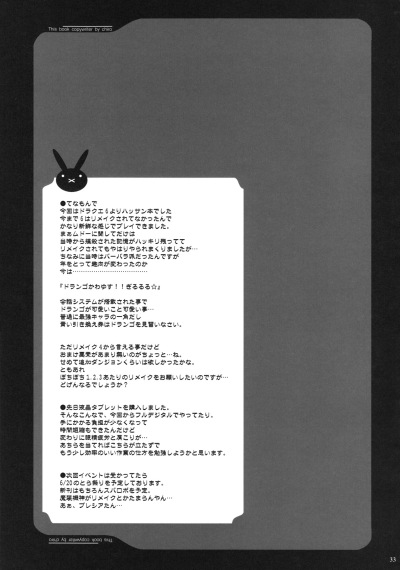 This book copywriter by chiro
●てなもんで
今回はドラクエ6よりハッサン本でした
今まで6はリメイクされてなかったんで
かなり新鮮な感じでプレイできました。
まぁムドーに関してだけは
当時から爆殺された記憶がハッキリ残ってて
リメイクされてもやはりやられまくりましたが…
ちなみに当時はバーバラ派だったんですが
年をとって趣向が変わったのか
今は………………………
『ドランゴかわゆす！！ぎるるるる☆』
会話システムが搭載された事で
ドランゴが可愛いこと可愛い事…
普通に最強キャラの一角だし
青い引き換え券はドランゴを見習いなさい。
ただリメイク4から言える事だけど
おまけ要素があまり無いのがちょっと…ね。
せめて追加ダンジョンくらいは欲しかったかな。
ともあれ
ぼちぼち1.2.3あたりのリメイクをお願いしたいのですが…
どげんなるでしょうか？
●先日液晶タブレットを購入しました。
そんなこんなで、今回からフルデジタルでやってたり。
手にかかる負担が少なくなって
時間短縮もできたんだけど
変わりに眼精疲労と肩こりが…
あちらを立てればこちらが立たずで
もう少し効率のいい作業の仕方を勉強しようかと思います。
●次回イベントは受かってたら
6/20のとら祭りを予定しております。
新刊はもちろんスパロボを予定。
魔装機神がリメイクとかたまらんやん…
あぁ、プレシアたん…
This book copywriter by chiro
33